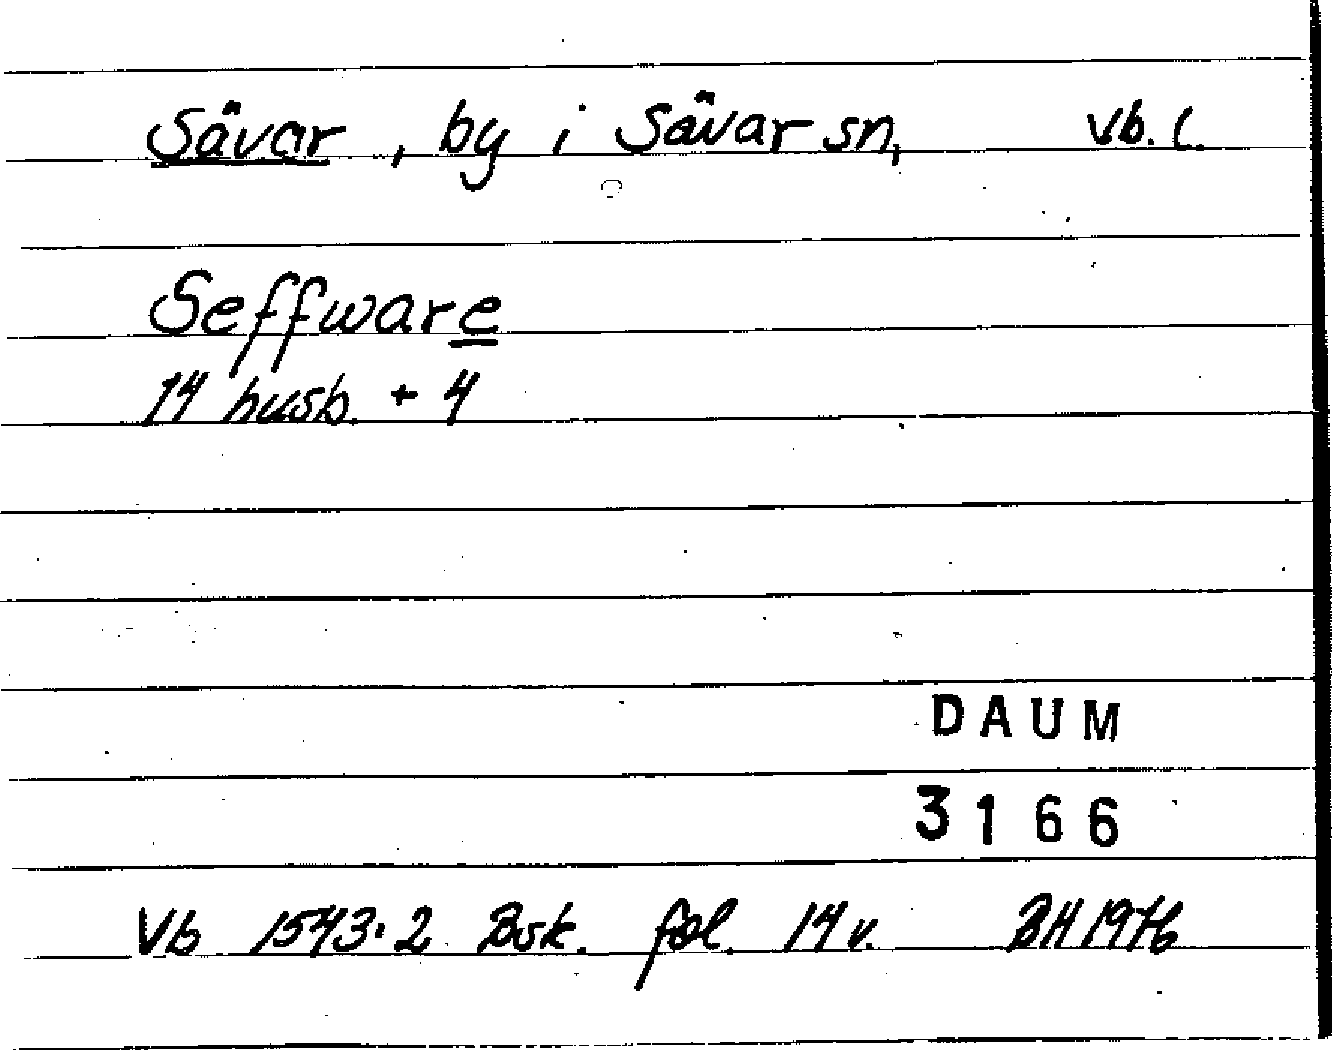 Sävar, by i Sävar sn, Vb. l.
Seffware
14 husb. + 4
DAUM
3166
Vb 1543:2 Bsk. fol. 14 v. BH 1976